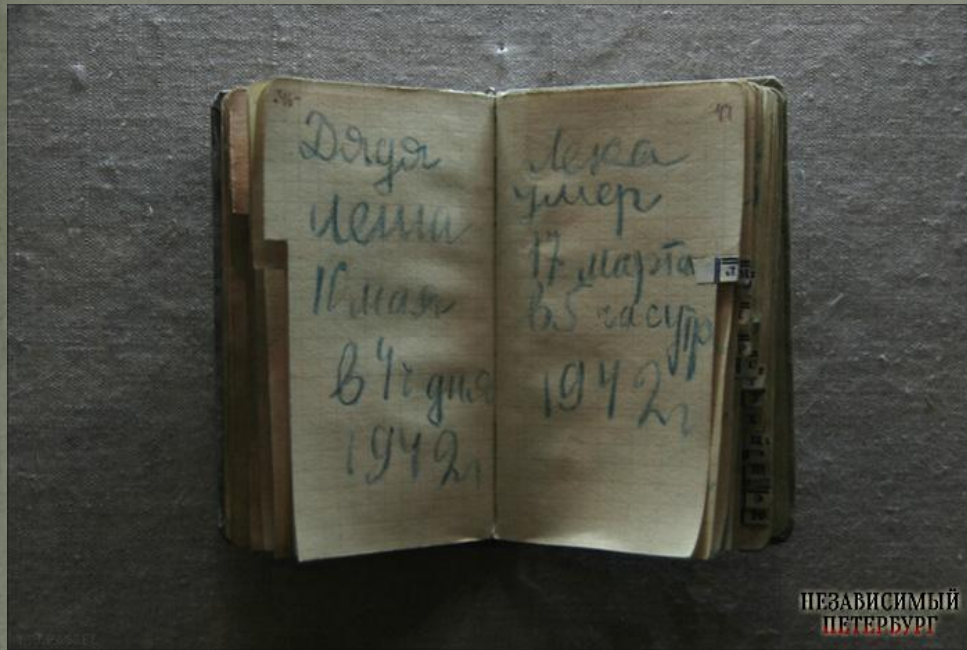 Дядя
Леша
10 мая
в 4 ч дня
1942 г
47
Лека
умер
17 марта
в 5 час утр
1942 г
НЕЗАВИСИМЫЙ
ПЕТЕРБУРГ